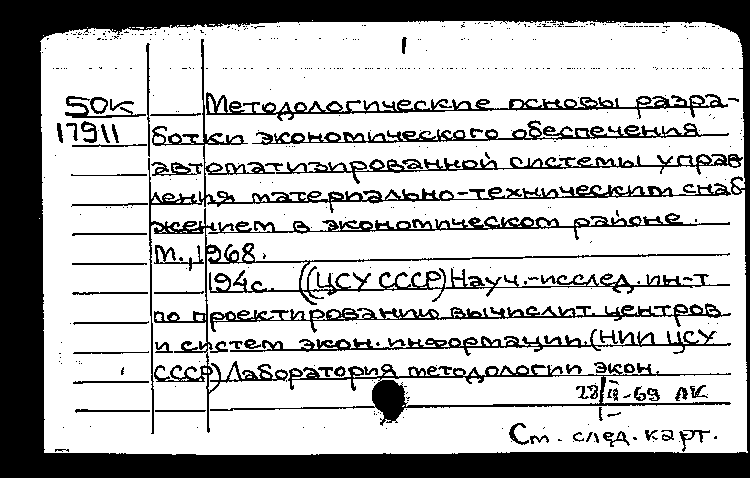 50К Методологические основы разра-
17911 ботки экономического обеспечения
автоматизированной системы управ
ления материально-техническим снаб
жением в экономическом районе.
М., 1968.
194с. ((ЦСУ СССР) Науч.-исслед. ин-т
по проектированию вычислит. центров
и систем экон. информации. (НИИ ЦСУ
СССР) Лаборатория методологии экон.
См. след. карт.